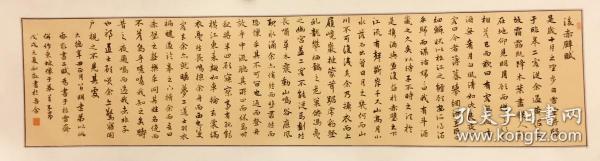 後赤壁賦
是歲十月之望步自雪堂將歸
于臨皋二客從余過黃泥之坂
霜露既降木葉盡脫人影
在地仰見明月顧而樂之行歌
相答已而歎曰有客無酒有酒無肴
月白風清如此良夜何
客曰今者薄暮舉網得魚巨口
細鱗狀似松江之鱸顧安所得酒
乎歸而謀諸婦婦曰我有斗酒
藏之久矣以待子不時之需於
是攜酒與魚復遊於赤壁之下
江流有聲斷岸千尺山高月小
水落石出曾日月之幾何而江山
不可復識矣余乃攝衣而上
履巉巖披蒙茸踞虎豹登
虯龍攀棲鶻之危巢俯馮夷
之幽宮蓋二客不能從焉劃然
長嘯草木震動山鳴谷應風
起水涌余亦悄然而悲肅然而
恐凜乎其不可留也反而登舟
放乎中流聽其所止而休焉時
夜將半四顧寂寥適有孤鶴
橫江東來翅如車輪玄裳縞
衣戛然長鳴掠余舟而西也須
臾客去余亦就睡夢一道士羽衣
蹁躚過臨皋之下揖余而言曰
赤壁之遊樂乎問其姓名俛而
不答嗚呼噫嘻我知之矣疇
昔之夜飛鳴而過我者非子
也耶道士顧笑余亦驚悟開
戶視之不見其處